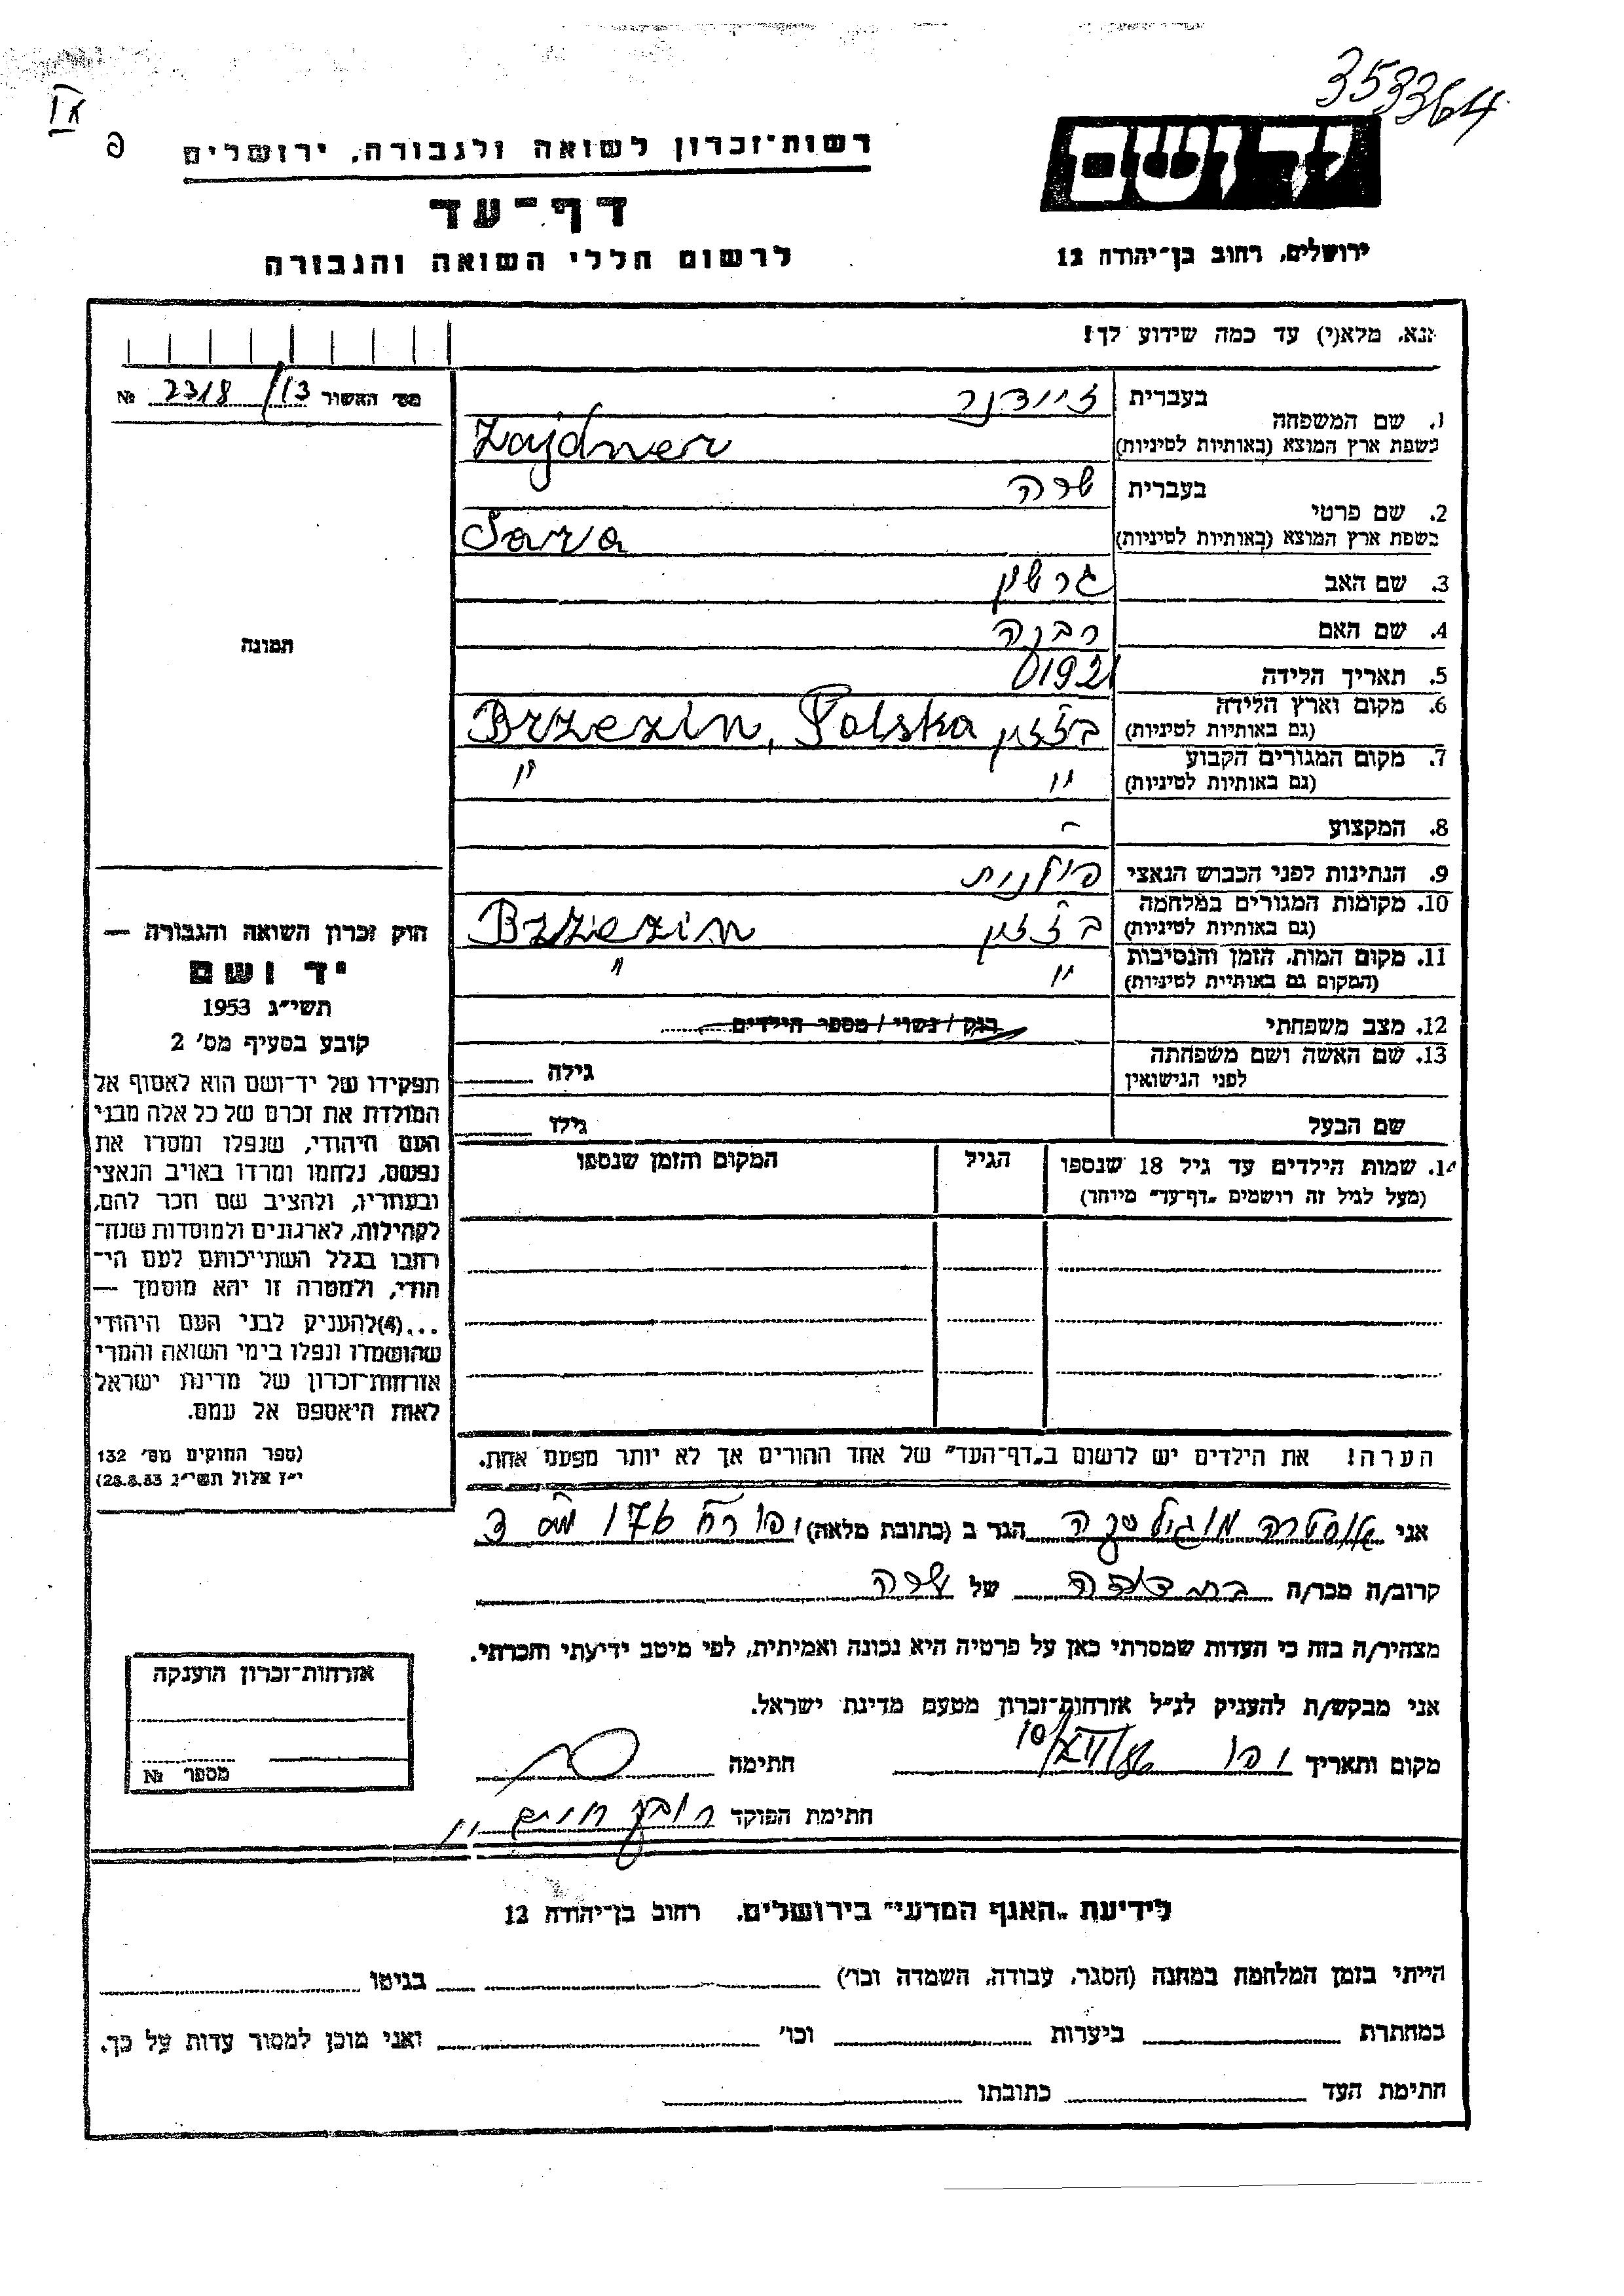 353364
רשות־זכרון לשואה ולגבורה, ירושלים
יד ושם
דף־עד
ירושלים, רחוב בן־יהודה 12
לרשום חללי השואה והגבורה
נא, מלא(י) עד כמה שידוע לך!
מס׳ האשור 2318/13 №
1. שם המשפחה
בעברית זיידנר
בשפת ארץ המוצא (באותיות לטיניות) Zajdner
2. שם פרטי
בעברית שרה
בשפת ארץ המוצא (באותיות לטיניות) Sara
3. שם האב גרשון
4. שם האם רבקה
5. תאריך הלידה 1921
6. מקום וארץ הלידה
(גם באותיות לטיניות) בזזין Brzezin, Polska
7. מקום המגורים הקבוע
(גם באותיות לטיניות) " "
8. המקצוע -
9. הנתינות לפני הכבוש הנאצי פולנית
10. מקומות המגורים במלחמה
(גם באותיות לטיניות) בזזין Brzezin
11. מקום המות, הזמן והנסיבות
(המקום גם באותיות לטיניות) " "
12. מצב משפחתי רווק / נשוי / מספר הילדים
13. שם האשה ושם משפחתה
לפני הנישואין גילה
שם הבעל גילו
14. שמות הילדים עד גיל 18 שנספו
(מעל לגיל זה רושמים „דף־עד" מיוחד)
הגיל
המקום והזמן שנספו
הערה! את הילדים יש לרשום ב„דף־העד" של אחד ההורים אך לא יותר מפעם אחת.
תמונה
חוק זכרון השואה והגבורה —
יד ושם
תשי״ג 1953
קובע בסעיף מס׳ 2
תפקידו של יד־ושם הוא לאסוף אל
המולדת את זכרם של כל אלה מבני
העם היהודי, שנפלו ומסרו את
נפשם, נלחמו ומרדו באויב הנאצי
ובעוזריו, ולהציב שם וזכר להם,
לקהילות, לארגונים ולמוסדות שנח־
רבו בגלל השתייכותם לעם הי־
הודי, ולמטרה זו יהא מוסמך —
...(4) להעניק לבני העם היהודי
שהושמדו ונפלו בימי השואה והמרי
אזרחות־זכרון של מדינת ישראל
לאות היאספם אל עמם.
(ספר החוקים מס׳ 132
י״ז אלול תשי״ג 28.8.53)
אני הגר ב (כתובת מלאה)
קרוב/ה מכר/ה בת דודה של שרה
מצהיר/ה בזה כי העדות שמסרתי כאן על פרטיה היא נכונה ואמיתית, לפי מיטב ידיעתי והכרתי.
אני מבקש/ת להעניק לנ״ל אזרחות־זכרון מטעם מדינת ישראל.
מקום ותאריך יפו חתימה
חתימת הפוקד
אזרחות־זכרון הוענקה
מספר №
לידיעת „האגף המדעי" בירושלים, רחוב בן־יהודה 12
הייתי בזמן המלחמה במחנה (הסגר, עבודה, השמדה וכו׳) בגיטו
במחתרת ביערות וכו׳ ואני מוכן למסור עדות על כך.
חתימת העד כתובתו